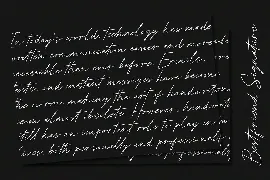 In today's world technology has made
written communication easier and more
accessible than ever before. Emails,
texts, and instant messages have become
the norm, making the art of handwritten
almost obsolete. However, handwritten
still has an important role to play in
lives, both personally and professionally.
professionally
and Signature